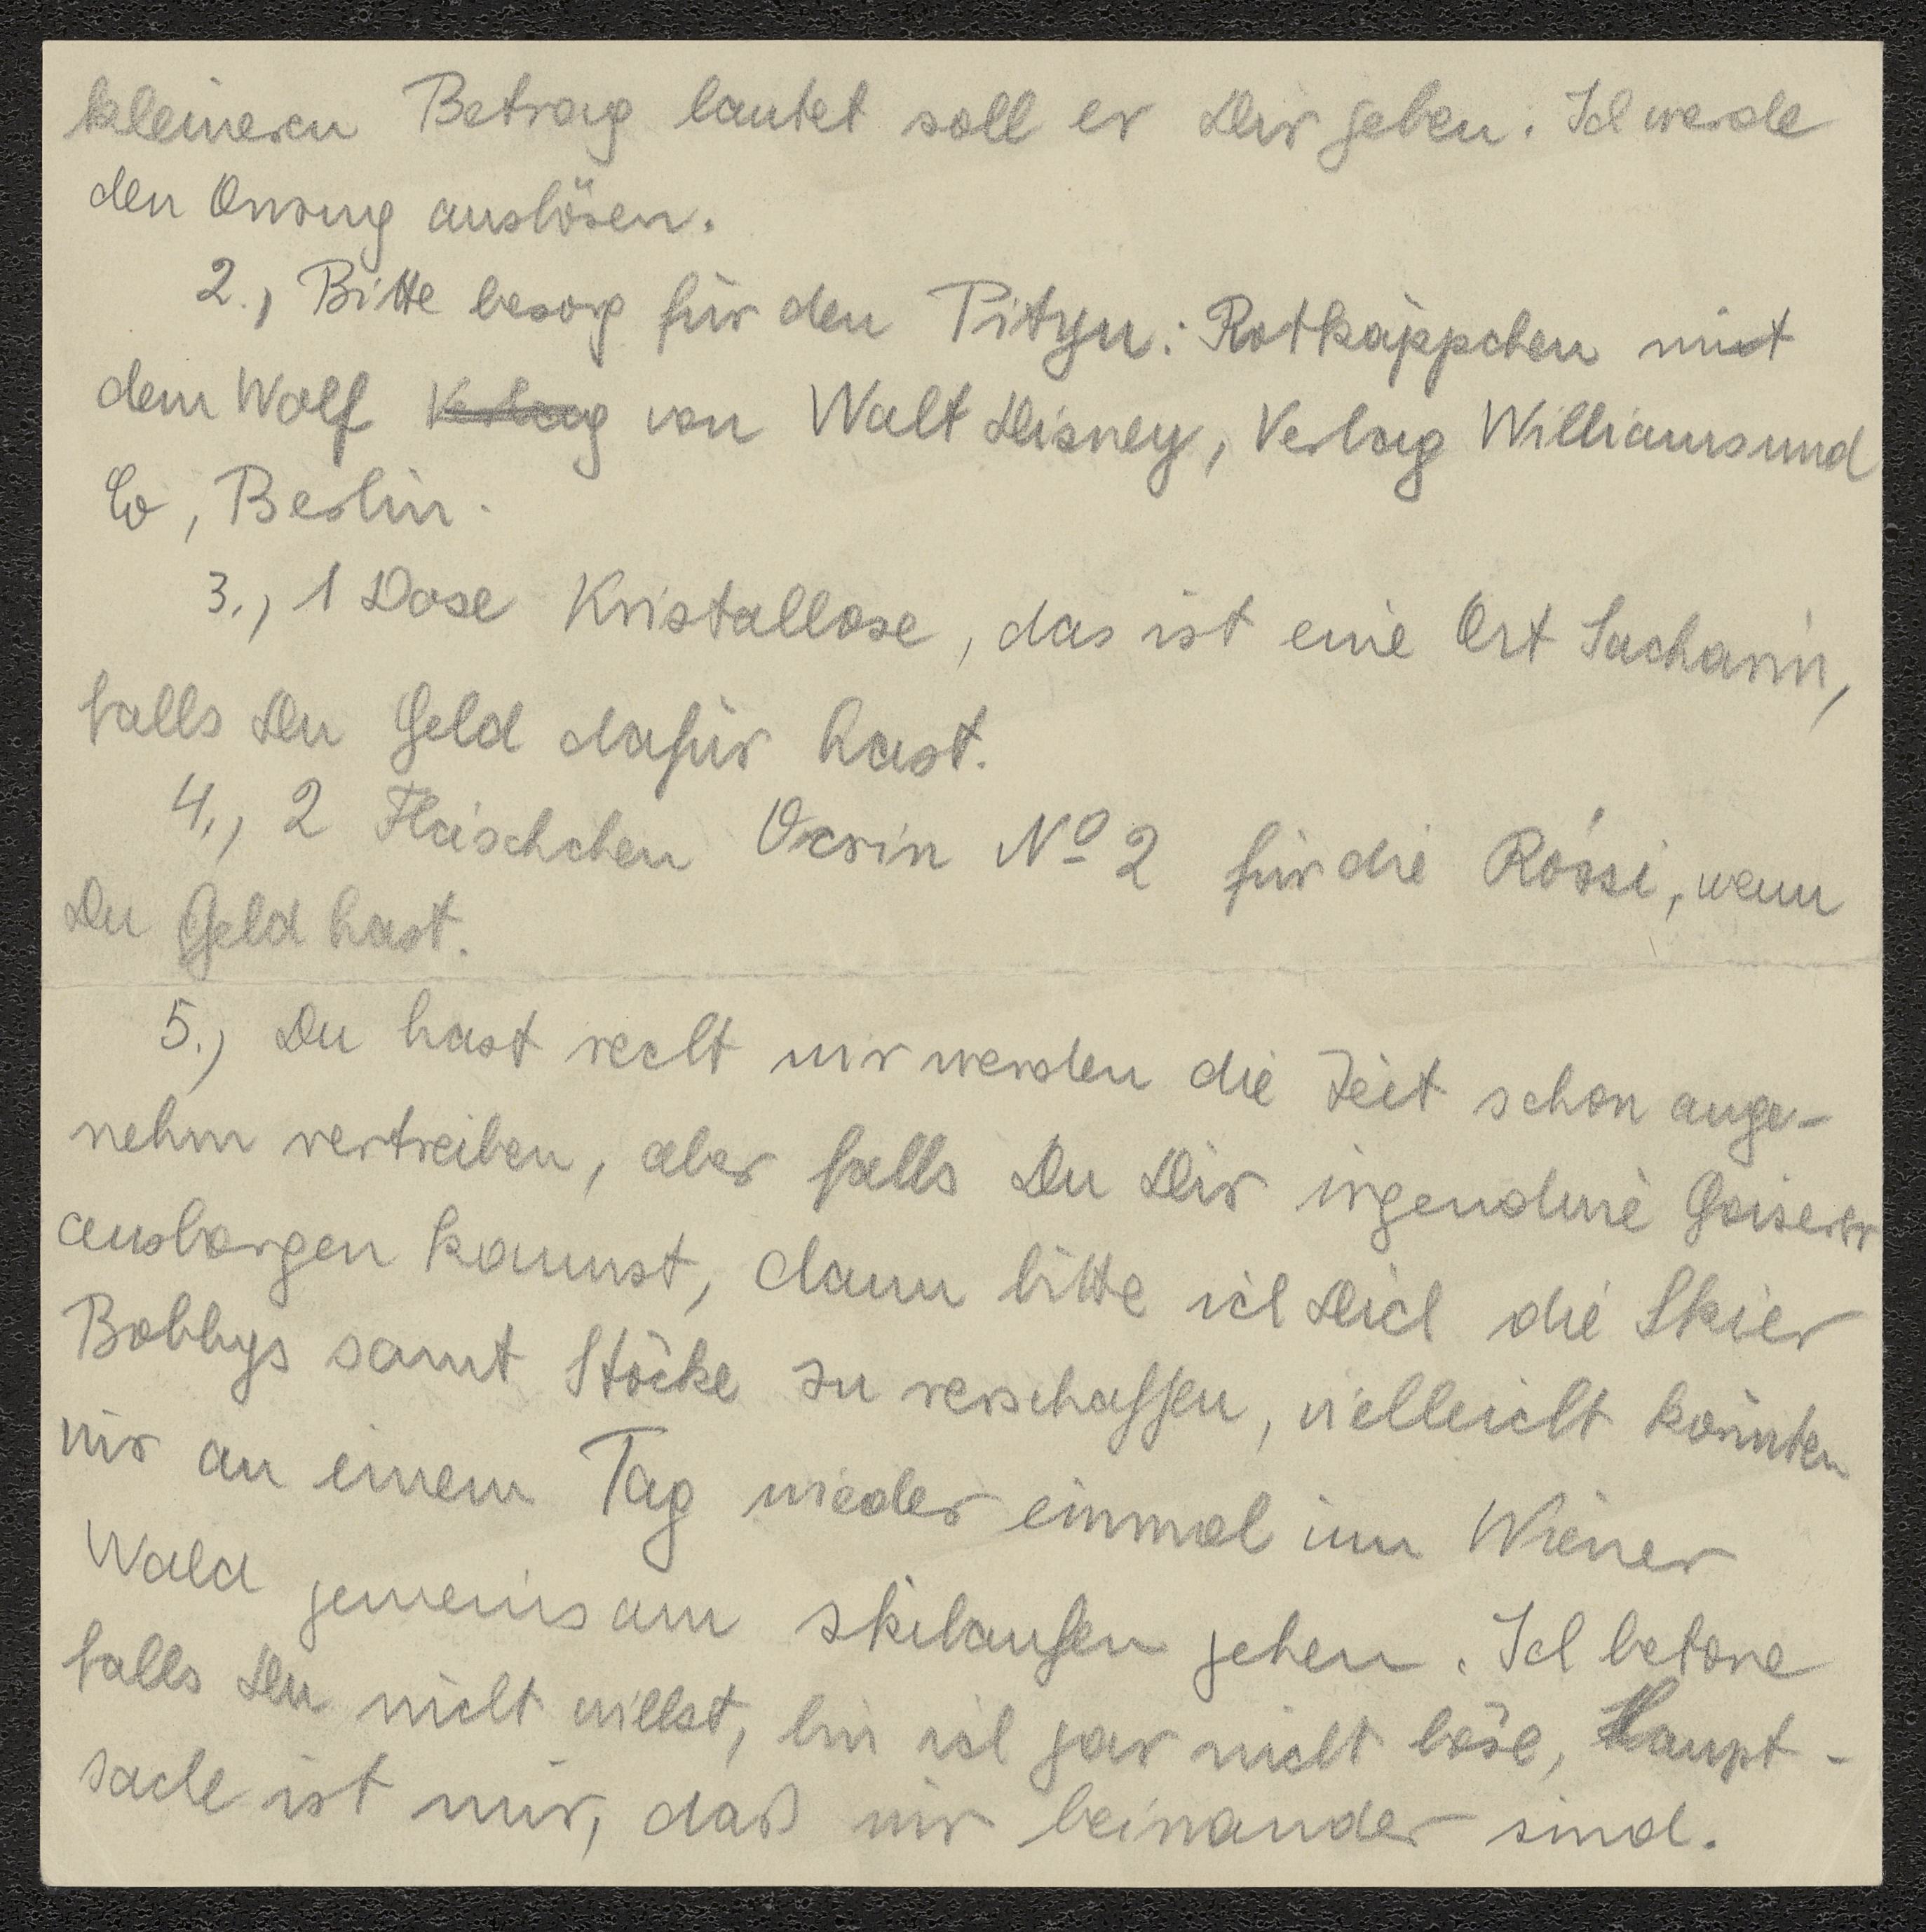 kleineren Betrag lautet soll er Dir geben. Ich werde
den Anzug auslösen.
2., Bitte besorg für den Pityu: Rotkäppchen mit
dem Wolf Verlag von Walt Disney, Verlag Williams und
Co, Berlin.
3., 1 Dose Kristallose, das ist eine Art Sacharin,
falls Du Geld dafür hast.
4., 2 Fläschchen Nº 2 für die Rózsi, wenn
Du Geld hast.
5.) Du hast recht wir werden die Zeit schon ange-
nehm vertreiben, aber falls Du Dir irgendeine
ausborgen kannst, dann bitte ich Dich die Skier
Bobbys samt Stöcke zu verschaffen, vielleicht könnten
wir an einem Tag wieder einmal im Wiener
Wald gemeinsam skilaufen gehen. Ich betone
falls Du nicht willst, bin ich gar nicht böse, Haupt-
sache ist mir, daß wir beinander sind.